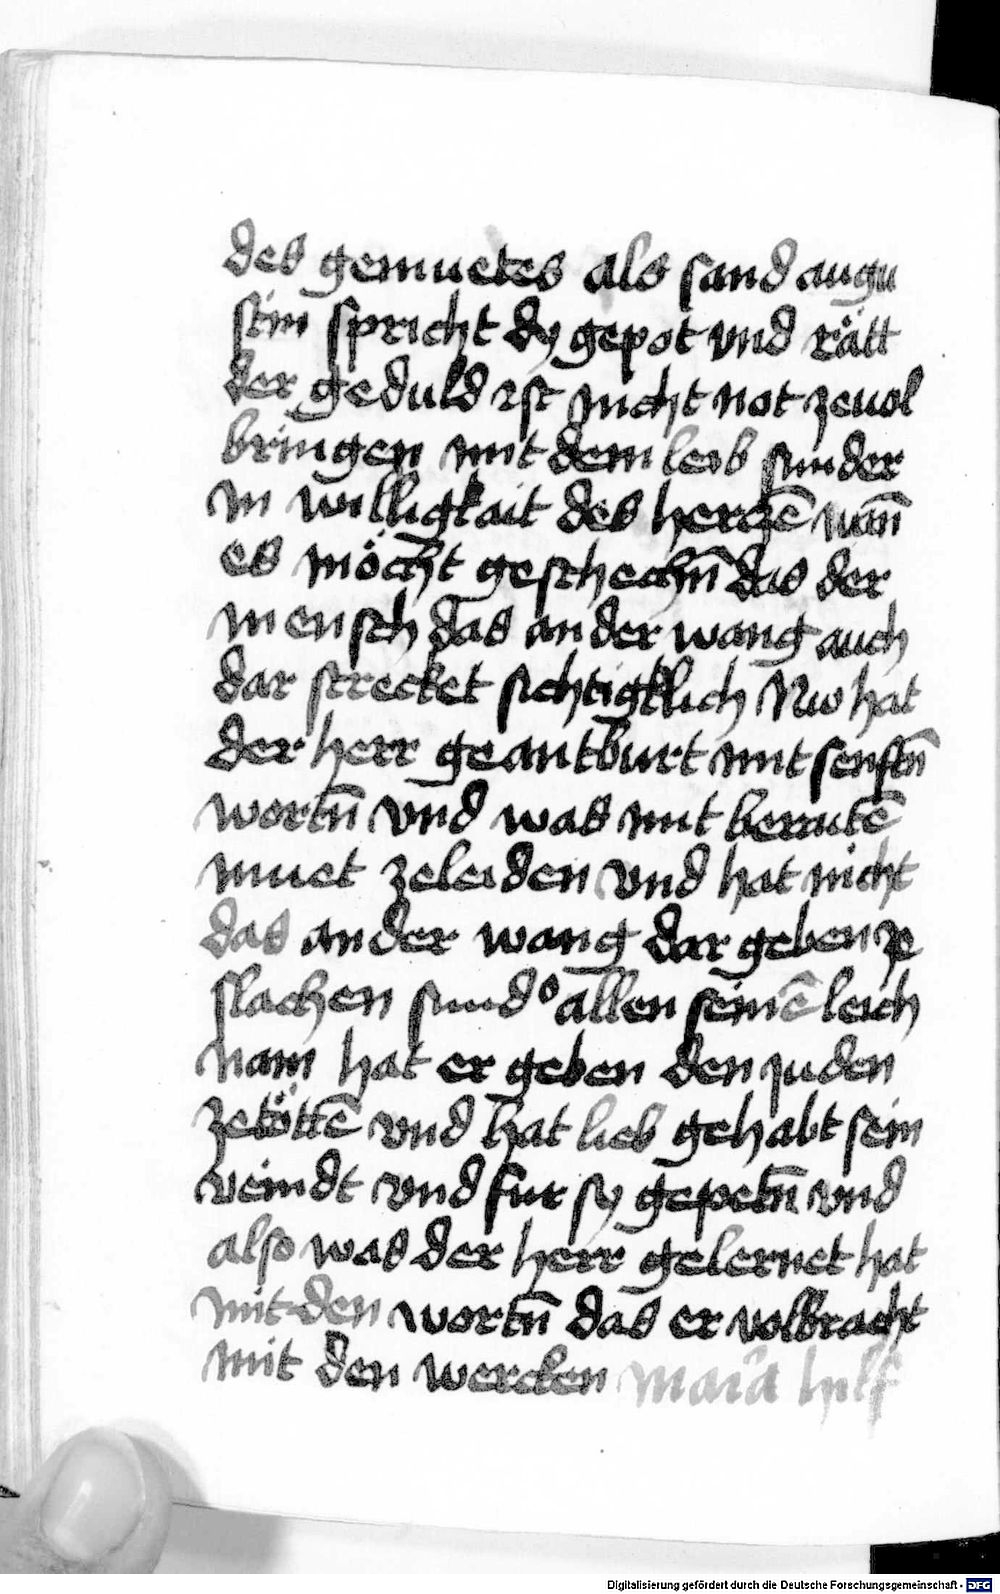 des gemuetes als sand augu
stin spricht dy gepot vnd rätt
der geduld ist nicht not zeuol
bringen mit dem leib sunder
in willigkait des herczē wan̄
es möcht geschechn̄ das der
mensch das ander wang auch
dar strecket sichtigklich Nw hat
der herr geantburt mit senftn̄
wortn̄ vnd was mit beraitē
muet zeleiden vnd hat nicht
das ander wang dar geben ze
slachen sundᵒ allen seinē leich
nam hat er geben den juden
zetöttē vnd hat lieb gehabt sein
veindt vnd fur sy gepetn̄ vnd
also was der herr gelernet hat
mit den wortn̄ das er volbracht
mit den wercken maria hilf
Digitalisierung gefördert durch die Deutsche Forschungsgemeinschaft - DFG